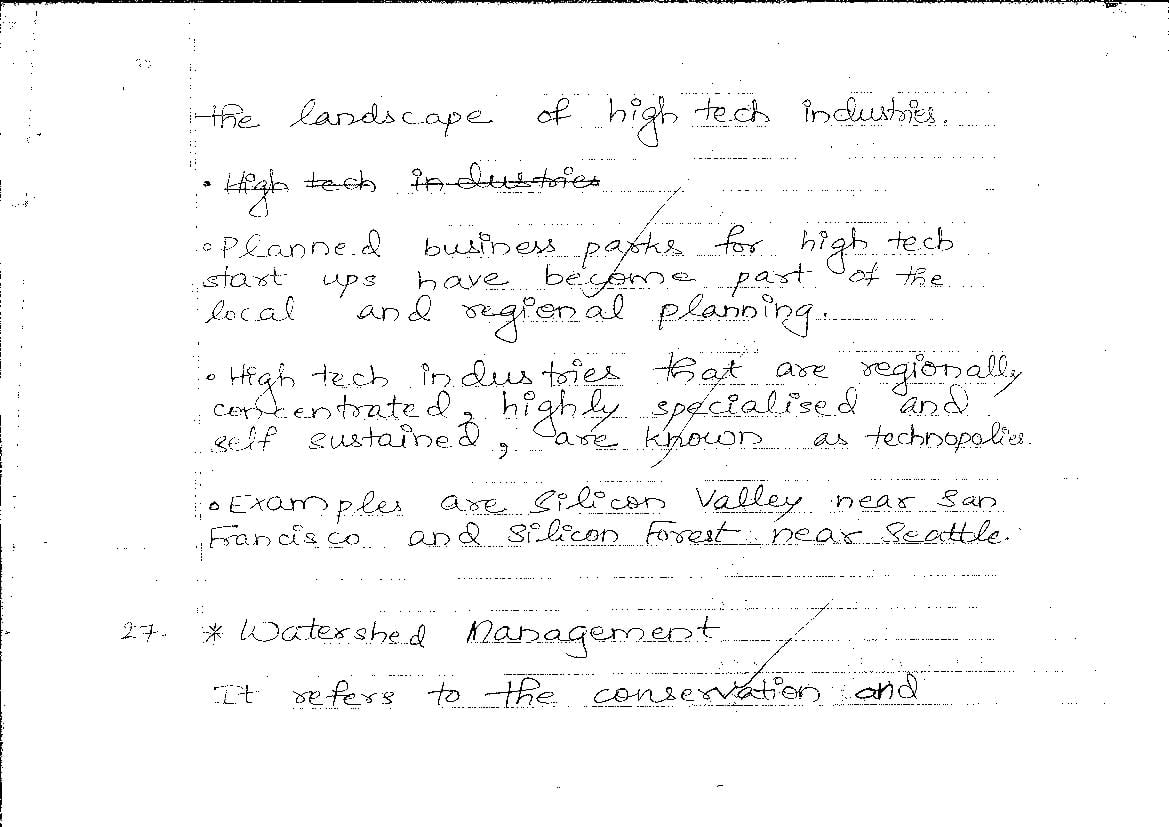 the landscape of high tech industries.
• High tech industries
• Planned business parks for high tech
start ups have become part of the
local and regional planning.
• High tech industries that are regionally
concentrated, highly specialised and
self sustained, are known as technopolies.
• Examples are Silicon Valley near San
Francisco and Silicon Forest near Seattle.
27. * Watershed Management
It refers to the conservation and